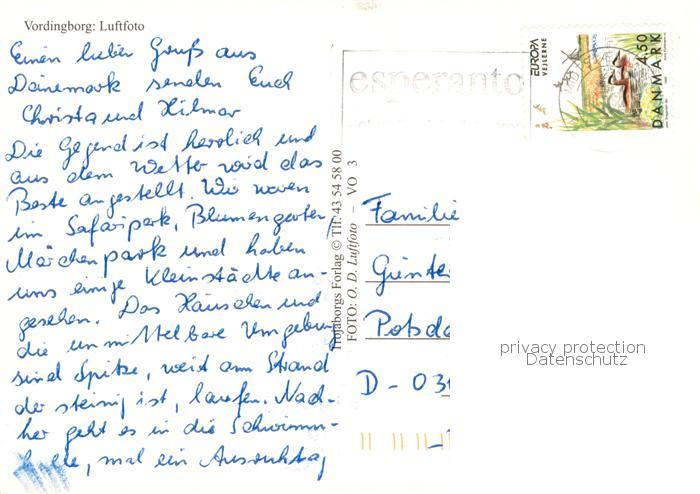 Vordingborg: Luftfoto
Einen lieben Gruß aus
Dänemark senden Euch
Christa und Hilmar
Die Gegend ist herrlich und
aus dem Wetter wird das
Beste angestellt. Wir waren
im Safaripark, Blumengarten,
Märchenpark und haben
uns einige Kleinstädte an-
gesehen. Das Häuschen und
die unmittelbare Umgebung
sind Spitze, weit am Strand
der steinig ist, laufen. Nach-
her geht es in die Schwimm-
halle, mal ein Ausruhtag
Trojaborgs Forlag © Tlf: 43 54 58 00
FOTO: O. D. Luftfoto – VO 3
esperanto
EUROPA
VEJLERNE
4.50
DANMARK
Familie
Günte
Potsda
D - 03
privacy protection
Datenschutz